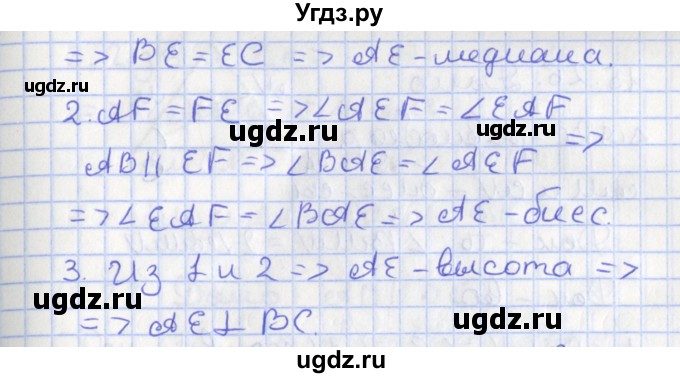 Угдз.ру
=> BE = EC => AE - медиана.
gdz.ru
ugdz.ru
2. AF = FE => ∠AEF = ∠EAF
ugdz.ru
ugdz.ru
=>
AB || EF => ∠BAE = ∠AEF
ugdz.ru
=> ∠EAF = ∠BAE => AE - биес.
ugdz.ru
ugdz.ru
3. Из 1 и 2 => AE - высота =>
ugdz.ru
=> AE ⊥ BC.
ugdz.ru
ugdz.ru